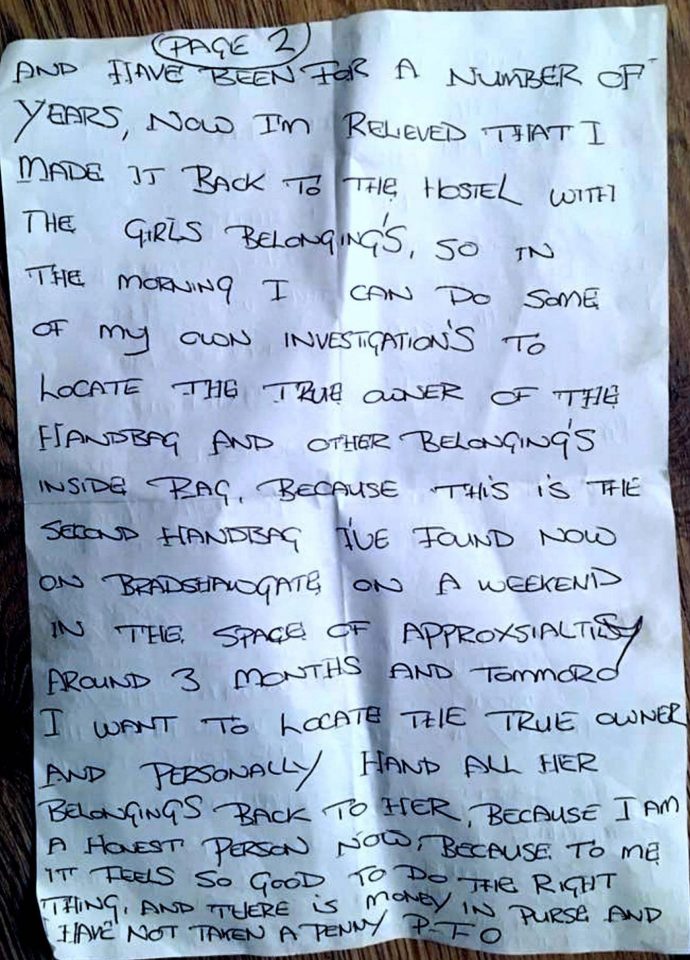 PAGE 2
AND HAVE BEEN FOR A NUMBER OF
YEARS, NOW I'M RELIEVED THAT I
MADE IT BACK TO THE HOSTEL WITH
THE GIRLS BELONGING'S, SO IN
THE MORNING I CAN DO SOME
OF MY OWN INVESTIGATION'S TO
LOCATE THE TRUE OWNER OF THE
HANDBAG AND OTHER BELONGING'S
INSIDE BAG, BECAUSE THIS IS THE
SECOND HANDBAG I'VE FOUND NOW
ON BRADSHAWGATE ON A WEEKEND
IN THE SPACE OF
AROUND 3 MONTHS AND TOMMORO
I WANT TO LOCATE THE TRUE OWNER
AND PERSONALLY HAND ALL HER
BELONGINGS BACK TO HER, BECAUSE I AM
A HONEST PERSON NOW, BECAUSE TO ME
IT FEELS SO GOOD TO DO THE RIGHT
THING, AND THERE IS MONEY IN PURSE AND
HAVE NOT TAKEN A PENNY P-T O